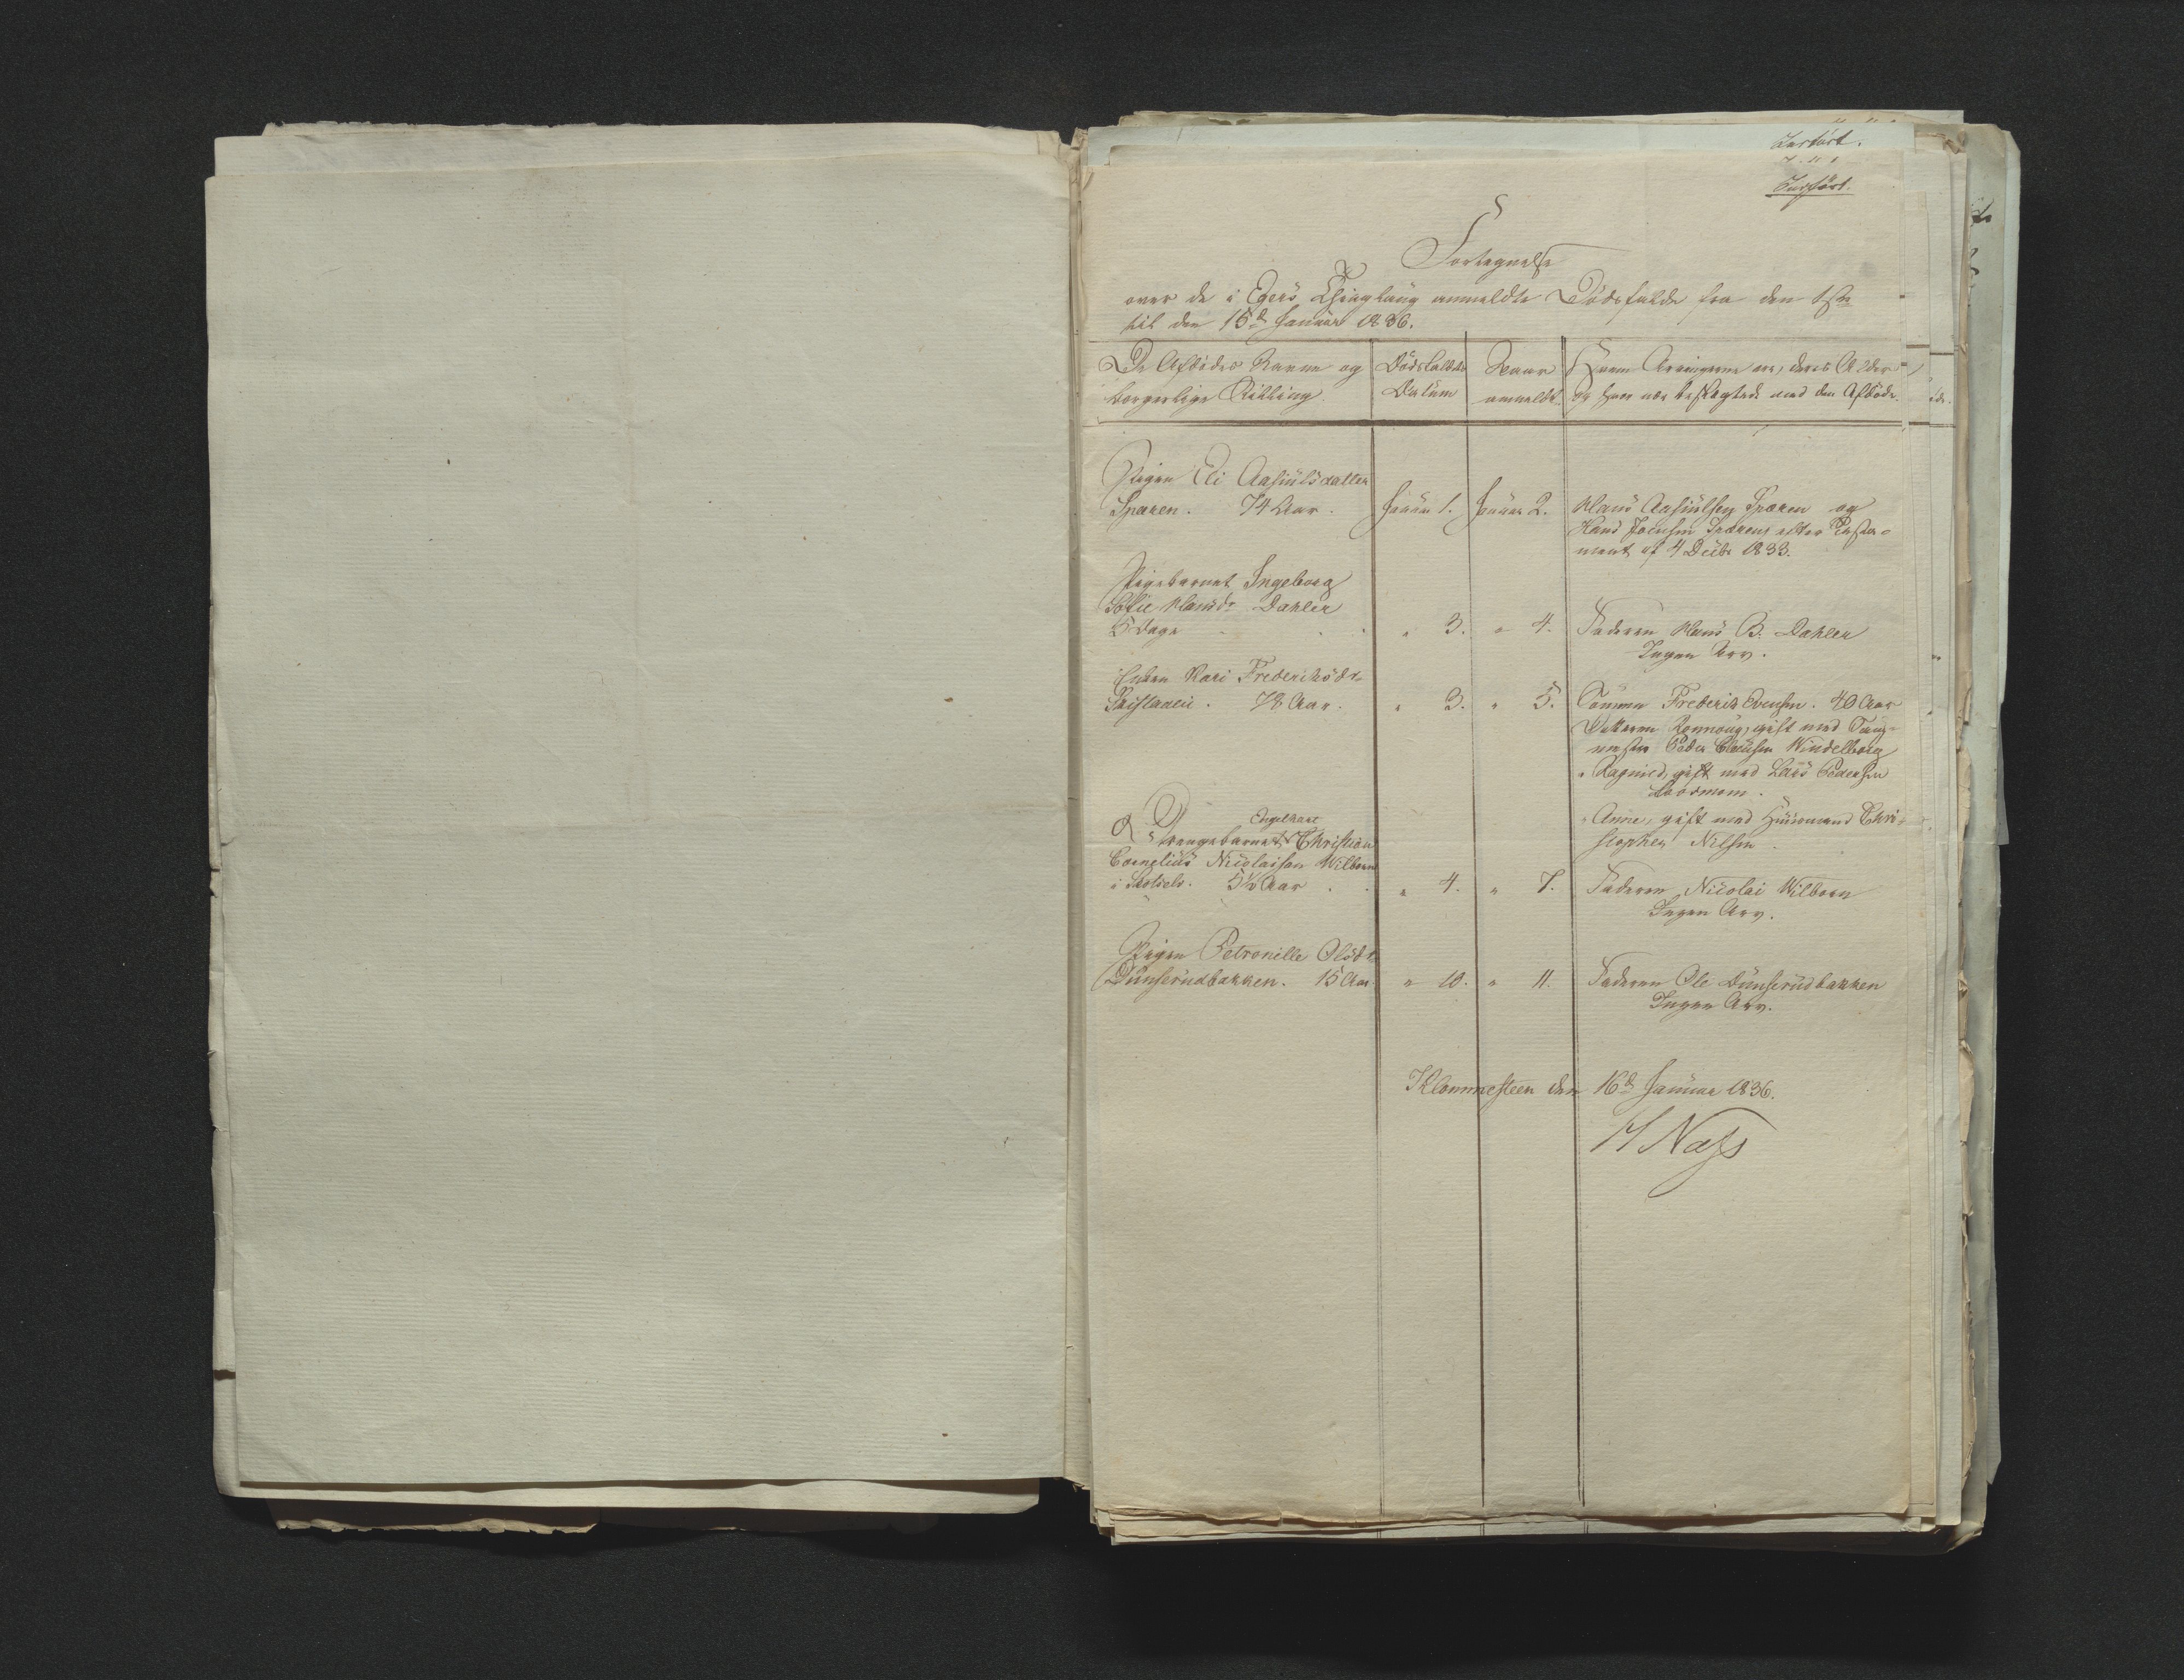 Indført.
Indført.
Fortegnelse
over de i Egers Thinglaug anmeldte Dødsfalde fra den 1ste
til den 15d Januar 1836.
De Afdødes Navne og
borgerlige Stilling.
Dødsfaldets
Datum
Naar
anmeldt
Hvem Arvingerne ere, deres Alder
og hvor nær beslægtede med den Afdøde.
Pigen Eli Aasiulsdatter
Sparen. 74 Aar.
Januar 1.
Januar 2.
Hans Aasiulsen Sparen og
Hans Joensen Sparens efter Testa-
ment af 4 Decbr 1833.
Pigebarnet Ingeborg
Sofie Hansdr Dahler
5 Dage
" 3.
" 4.
Faderen Hans B. Dahler
Ingen Arv.
Enken Kari Frederiksdr
78 Aar.
" 3.
" 5.
Sønnen Frederik Evensen. 40 Aar
Datteren Rønnoug, gift med Taug-
mester Peder Clausen Windelborg
" Ragnild, gift med Lars Pedersen
" Anne, gift med Huusmand Chri-
stopher Nilsen.
Engelhart
Drengebarnet Christian
Cornelius Nicolaisen Wilborn
i 5½ Aar
" 4.
" 7.
Faderen Nicolai Wilborn
Ingen Arv.
Pigen Petronille Olsdr
Dunserudbakken. 15 Aar
" 10.
" 11.
Faderen Ole Dunserudbakken
Ingen Arv.
Klommesteen den 16d Januar 1836.
H Næss